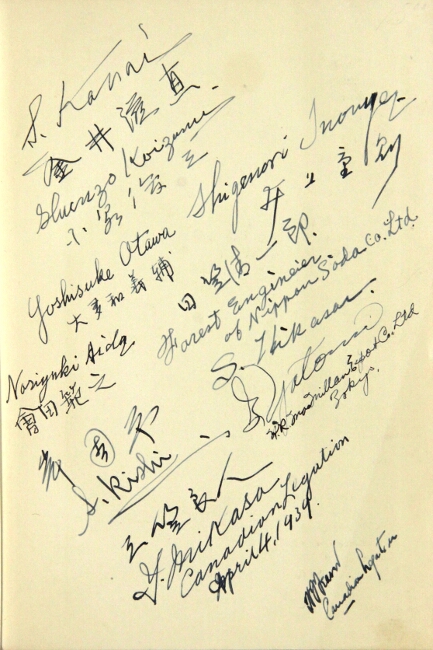 S. Kanai
金井滋直
Shunzo Koizumi
小泉俊三
Shigenori Inouye
井上重則
Yoshisuke Otawa
大多和義輔
田笠満一郎.
Forest Engineier
of Nippon Soda Co. Ltd.
S. Ikikasa
Noriyuki Aida
會田範之
H.R. MacMillan Export Co. Ltd
Tokyo.
S. Kishi
三笠義人
Y. Mikasa
Canadian Legation
April 4, 1939.
Canadian Legation